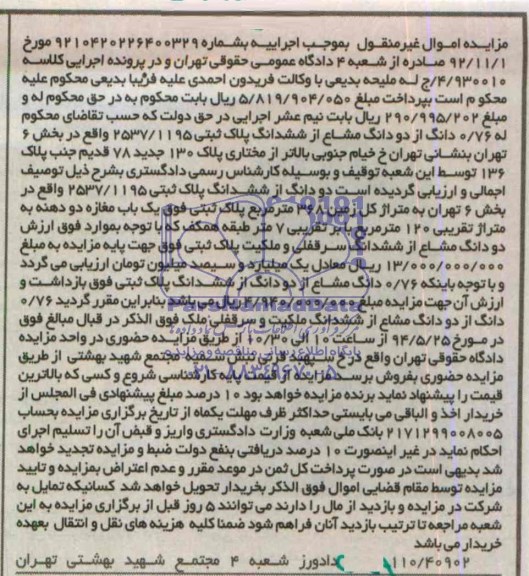 مزایـده امـوال غیرمنقـول بموجـب اجراییـه بشمـاره ۹۲۱۰۴۲۰۲۲۶۴۰۰۳۲۹ مورخ
۹۲/۱۱/۱ صـادره از شـعبه ۴ دادگاه عمومـی حقوقی تهران و در پرونده اجرایی کلاسـه
۴/۹۳۰۰۱۰/ج لـه ملیحه بدیعی با وکالت فریدون احمدی علیه فریبا بدیعی محکوم علیه
محکوم است بپرداخت مبلغ ۵/۸۱۹/۹۰۴/۰۵۰ ریال بابت محکوم به در حق محکوم له و
مبلغ ۲۹۰/۹۹۵/۲۰۲ ریال بابت نیم عشر اجرایی در حق دولت که حسب تقاضای محکوم
له ۰/۷۶ دانگ از دو دانگ مشـاع از ششدانگ پلاک ثبتی ۲۵۳۷/۱۱۹۵ واقع در بخش ۶
تهران بنشـانی تهران خ خیام جنوبی بالاتر از مختاری پلاک ۱۳۰ جدید ۷۸ قدیم جنب پلاک
۱۳۶ توسـط این شعبه توقیف و بوسـیله کارشناس رسمی دادگستری بشرح ذیل توصیف
اجمالی و ارزیابی گردیده اسـت دو دانگ از ششـدانگ پلاک ثبتی ۲۵۳۷/۱۱۹۵ واقع در
بخش ۶ تهران به متراژ کل زمین ۳۶ مترمربع پلاک ثبتی فوق یک باب مغازه دو دهنه به
متراژ تقریبی ۱۲۰ مترمربع با بر تقریبی ۷ متر طبقه همکف که با توجه بموارد فوق ارزش
دو دانگ مشـاع از ششدانگ سـرقفلی و ملکیت پلاک ثبتی فوق جهت پایه مزایده به مبلغ
۱۳/۰۰۰/۰۰۰/۰۰۰ ریـال معادل یک میلیارد و سـیصد میلیون تومان ارزیابی می گردد
و با توجه باینکه ۰/۷۶ دانگ مشـاع از دو دانگ از ششـدانگ پلاک ثبتی فوق بازداشـت و
ارزش آن جهت مزایده مبلغ ۴/۹۴۰/۰۰۰/۰۰۰ ریال می باشد بنابراین مقرر گردید ۰/۷۶
دانگ از دو دانگ مشاع از ششدانگ ملکیت و سـرقفلی ملک فوق الذکر در قبال مبالغ فوق
در مـورخ ۹۴/۵/۲۵ از ساعت ۱۰ الی ۱۰/۳۰ از طریق مزایـده حضوری در واحد مزایده
دادگاه حقوقی تهران واقع در خ سـپهبد قرنی نبش سـمیه مجتمع شهید بهشتی از طریق
مزایده حضوری بفروش برسـد مزایده از قیمت پایه کارشناسی شروع و کسی که بالاترین
قیمت را پیشنهاد نماید برنده مزایده خواهد بود ۱۰ درصد مبلغ پیشنهادی فی المجلس از
خریدار اخذ و الباقی می بایستی حداکثر ظرف مهلت یکماه از تاریخ برگزاری مزایده بحساب
۲۱۷۱۲۹۹۰۰۸۰۰۵ بانک ملی شعبه وزارت دادگستری واریز و قبض آن را تسلیم اجرای
احکام نماید در غیر اینصورت ۱۰ درصد دریافتی بنفع دولت ضبط و مزایده تجدید خواهد
شد بدیهی است در صورت پرداخت کل ثمن در موعد مقرر و عدم اعتراض بمزایده و تایید
مزایده توسط مقام قضایی اموال فوق الذکر بخریدار تحویل خواهد شد کسانیکه تمایل به
شرکت در مزایده و بازدید از مال را دارند می توانند ۵ روز قبل از برگزاری مزایده به این
شعبه مراجعه تا ترتیب بازدید آنان فراهم شود ضمنا کلیه هزینه های نقل و انتقال بعهده
خریدار می باشد
۱۱۰/۴۰۹۰۲ دادورز شـعبه ۴ مجتمـع شـهید بهشـتی تهـران